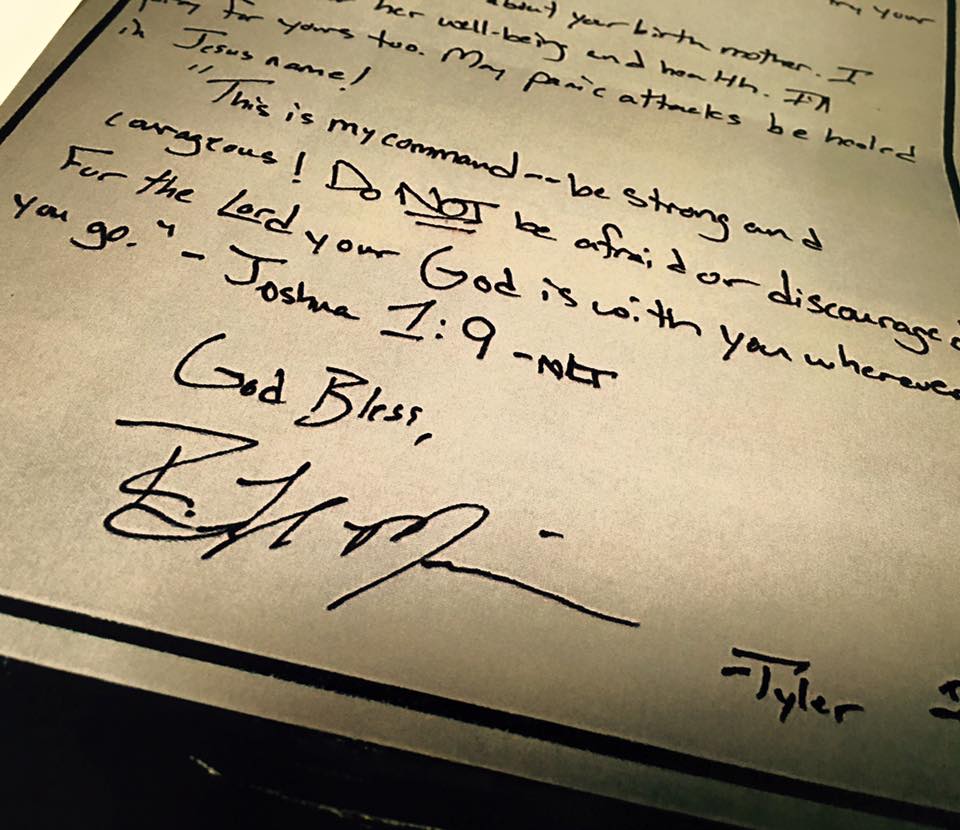 my your
about your birth mother. I
her well-being and health. I'm
for yours too. May panic attacks be healed
in Jesus name!
"This is my command -- be strong and
courageous! Do NOT be afraid or discouraged
For the Lord your God is with you wherever
you go." - Joshua 1:9 - NLT
God Bless,
-Tyler